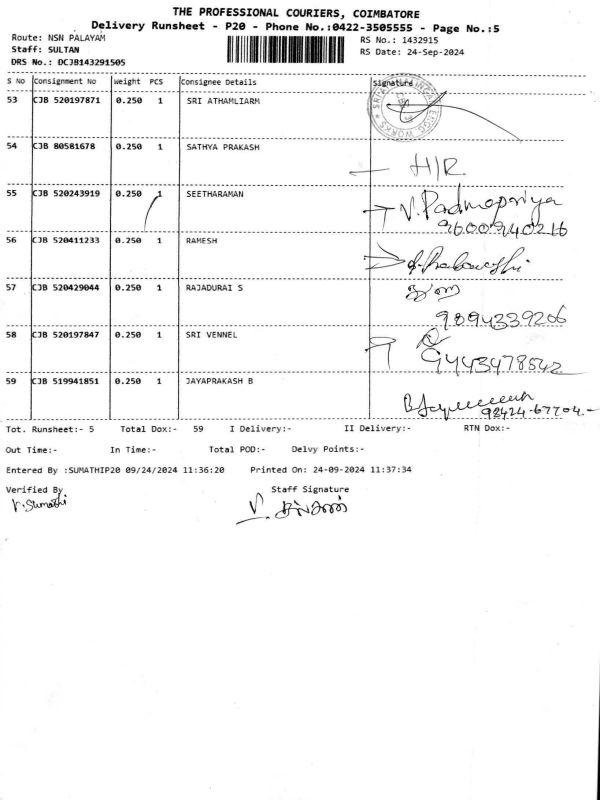 THE PROFESSIONAL COURIERS, COIMBATORE
Delivery Runsheet - P20 - Phone No.:0422-3505555 - Page No.:5
Route: NSN PALAYAM RS No.: 1432915
Staff: SULTAN RS Date: 24-Sep-2024
DRS No.: DCJB143291505
S No Consignment No Weight PCS Consignee Details Signature
53 CJB 520197871 0.250 1 SRI ATHAMLIARM
54 CJB 80581678 0.250 1 SATHYA PRAKASH
H/R
55 CJB 520243919 0.250 1 SEETHARAMAN V. Padmapriya
9600940216
56 CJB 520411233 0.250 1 RAMESH
57 CJB 520429044 0.250 1 RAJADURAI S
9894339206
58 CJB 520197847 0.250 1 SRI VENNEL
9443478542
59 CJB 519941851 0.250 1 JAYAPRAKASH B
92424-67704.-
Tot. Runsheet:- 5 Total Dox:- 59 I Delivery:- II Delivery:- RTN Dox:-
Out Time:- In Time:- Total POD:- Delvy Points:-
Entered By :SUMATHIP20 09/24/2024 11:36:20 Printed On: 24-09-2024 11:37:34
Verified By Staff Signature
V. Sumathi V. சுல்தான்